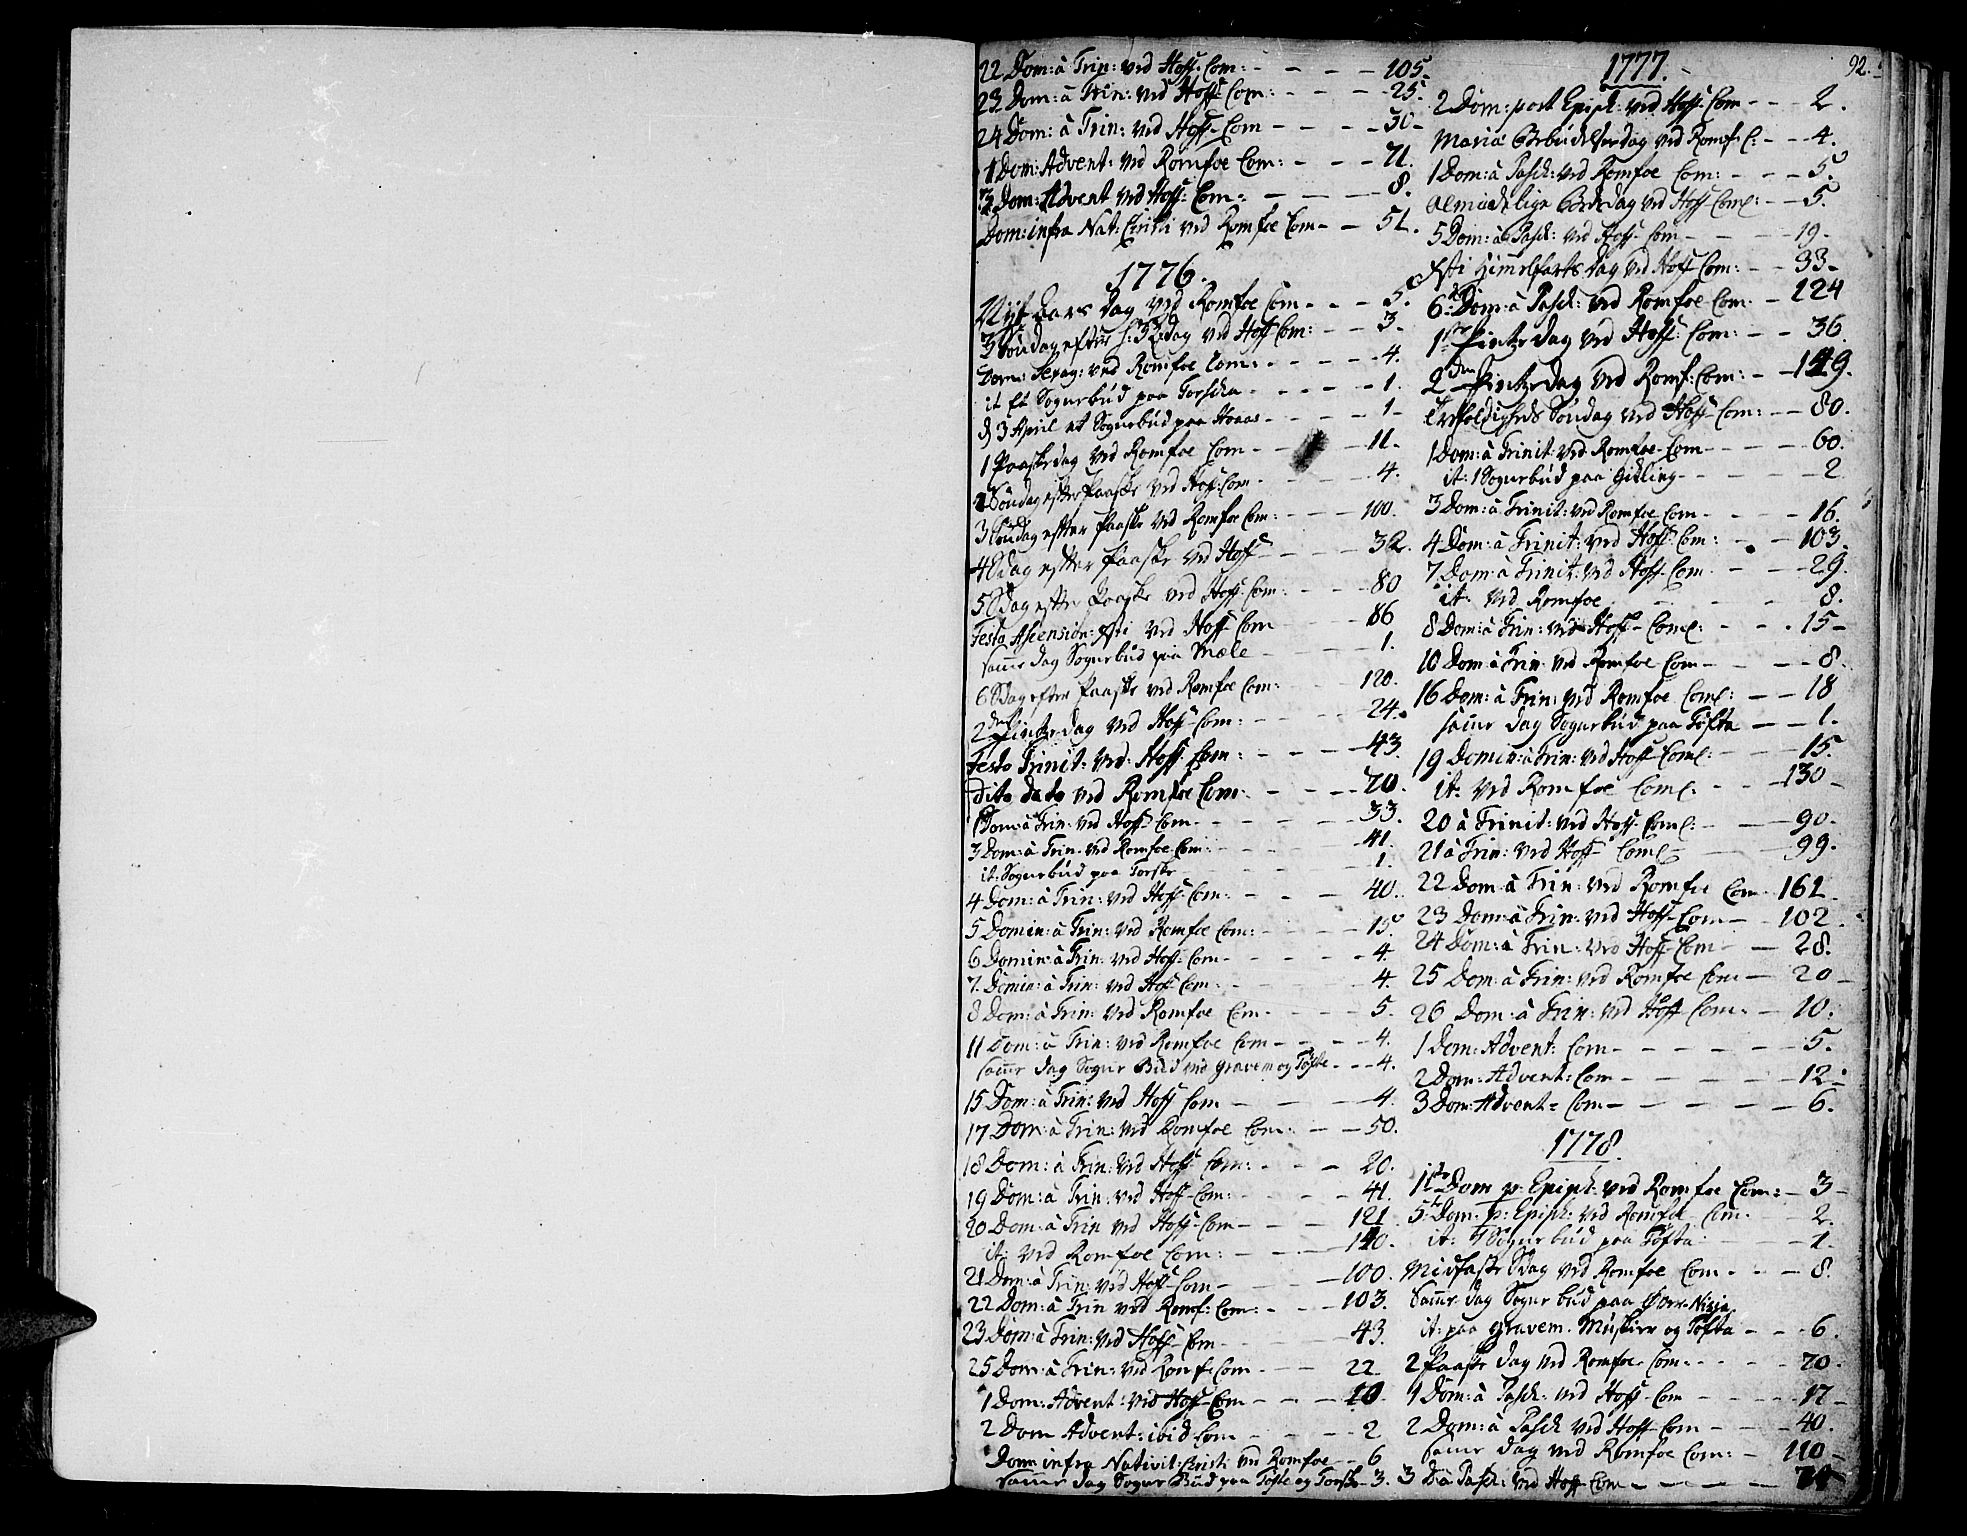 22 Dom: à Trin: ved Hoff: Com: - - - - 105.
23 Dom: à Trin: ved Hoff: Com: - - - - 25.
24 Dom: à Trin: ved Hoff- Com - - - - 30-
1 Dom: Advent: ved Romfoe Com: - - - 71.
3 Dom: Advent ved Hoff- Com: - - - 8.
Dom: infra Nat: Christi ved Romfoe Com - - 51.
1776.
Nyt Aars dag ved Romfoe Com - - - 5.
3 Søndag efter H: 3 K: dag ved Hoff Com: - - 3.
Dom: Sexag: ved Romfoe Com: - - - - 4.
it Et Sognebud paa Torske - - - - 1.
d 3 April et Sognebud paa Hoaas - - - - 1-
1 Paaskedag ved Romfoe Com - - - - 11.
Søndag efter Paaske ved Hoff: Com - - - 4.
3 Søndag efter Paaske ved Romfoe Com: - - - 100.
4 Sdag efter Paaske ved Hoff - - - 32.
5 Sdag efter Paaske ved Hoff- Com: - - - 80
Festo Ascension: Xsti ved Hoff- Com - - 86
samme dag Sognebud paa Mæle - - - 1.
6 Sdag efter Paaske ved Romfoe Com: - - 120.
2den Pintzedag ved Hoff- Com: - - - 24.
Festo Trinit: ved Hoff- Com: - - - 43
dito dato ved Romfoe Com - - - 70.
1 Dom: à Trin: ved Hoff- Com - - - - 33.
3 Dom: à Trin: ved Romfoe Com: - - - 41.
it: Sognebud paa Torske - - - 1.
4 Dom: à Trin: ved Hoff- Com: - - - 40.
5 Domin: à Trin: ved Romfoe Com: - - - 15.
6 Domin: à Trin: ved Hoff- Com - - - - 4.
7. Domin: à Trin: ved Hoff Com: - - - 4.
8 Dom: à Trin: ved Romfoe Com - - - - 5.
11 Dom: à Trin: ved Romfoe Com - - - - 4.
samme dag Sogne Bud ved Gravem og Tøfte - - - 4.
15 Dom: à Trin: ved Hoff Com - - - 4.
17 Dom: à Trin: ved Romfoe Com: - - 50.
18 Dom: à Trin: ved Hoff- Com: - - - 20.
19 Dom: à Trin: ved Hoff- Com: - - - 41.
20 Dom: à Trin ved Hoff- Com - - - 121
it: ved Romfoe Com: - - - 140.
21 Dom: à Trin: ved Hoff- Com - - - - 100.
22 Dom: à Trin ved Romf: Com: - - - 103.
23 Dom: à Trin: ved Hoff- Com - - - 43.
25 Dom: à Trin: ved Romf- Com - - - 22
1 Dom: Advent: ved Hoff- Com - - - - 10-
2 Dom Advent: ibid Com - - - - 2
Dom: infra Nativit: Christi ved Romfoe - - 6
samme dag Sogne Bud paa Tøfte og Torske - 3.
92.
1777.
2 Dom: post Epiph: ved Hoff- Com - - - 2.
Mariæ Bebudelses dag ved Romf: C: - - 4.
1 Dom: à Pasch: ved Romfoe Com: - - - 5.
Almindelige Bededag ved Hoff- Com: - - 5.
5 Dom: à Pasch: ved Hoff- Com - - - 19-
Xsti Himmelfarts dag ved Hoff Com: - - 33-
6te Dom: à Pasch: ved Romfoe Com: - 124
1ste Pintzedag ved Hoff: Com: - - 36.
2den Pintzedag ved Romf: Com: - - 149.
Trefoldigheds Søndag ved Hoff- Com: - - 80.
1 Dom: à Trinit: ved Romfoe- Com - - - 60.
it: 1 Sognebud paa Gikling - - - 2
3 Dom: à Trinit: ved Romfoe Com - - - 16.
4 Dom: à Trinit: ved Hoff- Com: - - - 103.
7 Dom: à Trinit: ved Hoff- Com - - - 29.
it: ved Romfoe - - - 8.
8 Dom: à Trin: ved Hoff- Com: - - - 15-
10 Dom: à Trin: ved Romfoe Com - - - 8.
16 Dom: à Trin: ved Romfoe Com: - - 18
samme dag Sognebud paa Tøfta - - 1.
19 Domin: à Trin: ved Hoff- Com: - - 15.
it: ved Romfoe Com: - - - 130-
20 à Trinit: ved Hoff- Com: - - 90-
21 à Trin: ved Hoff- Com - - - 99.
22 Dom: à Trin: ved Romfoe Com 161
23 Dom: à Trin: ved Hoff- Com - 102.
24 Dom: à Trin: ved Hoff- Com - - 28.
25 Dom: à Trin: ved Romfoe Com - 20-
26 Dom: à Trin: ved Hoff Com: - 10.
1 Dom: Advent: Com - - - - - - 5.
2 Dom: Advent: Com - - - - - 12-
3 Dom: Advent: Com - - - - - 6.
1778.
1ste Dom p: Epiph: ved Romfoe Com: - 3-
5te Dom: p: Epiph: ved Romfoe- Com- - - 2.
it: 1 Sognebud paa Tøfta - - - 1.
Midfaste Sdag ved Romfoe Com - - - 8.
Samme dag Sogne bud paa
it: paa Gravem. og Tøfta - - - 6.
2 Paaske dag ved Romfoe- Com: - - - 70-
1 Dom: à Pasch: ved Hoff- Com - - - 17-
2 Dom: à Pasch ved Hoff- Com - - - 40.
samme dag ved Romfoe Com: - 110-
3 D: à Pasch: ved Hoff- Com - - - -